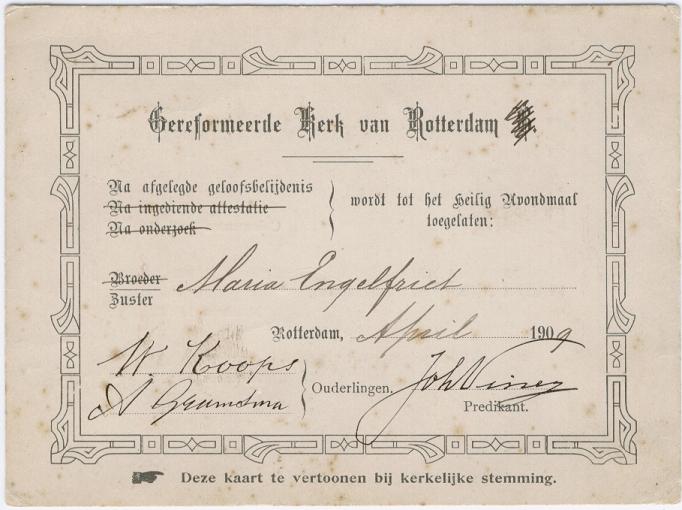 Gereformeerde Kerk van Rotterdam
Na afgelegde geloofsbelijdenis
Na ingediende attestatie
Na onderzoek
wordt tot het Heilig Avondmaal
toegelaten:
Broeder
Zuster
Maria Engelfriet
Rotterdam, April 1909
W. Koops
A
Ouderlingen.
Joh
Predikant.
Deze kaart te vertoonen bij kerkelijke stemming.